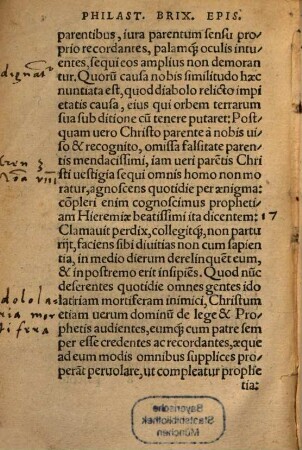 PHILAST. BRIX. EPIS.
parentibus, iura parentum sensu pro
prio recordantes, palamq; oculis intu
entes, sequi eos amplius non demoran
tur. Quorũ causa nobis similitudo hæc
nuntiata est, quod diabolo relicto impi
etatis causa, eius qui orbem terrarum
sua sub ditione cũ tenere putaret: Post
quam uero Christo parente â nobis ui
so & recognito, omissa falsitate paren
tis mendacissimi, iam ueri parẽtis Chri
sti uestigia sequi omnis homo non mo
ratur, agnoscens quotidie per ænigma:
cõpleri enim cognoscimus prophetiã
Hieremiæ beatissimi ita dicentem:
17
Clamauit perdix, collegitq́;, non partu
rijt, faciens sibi diuitias non cum sapien
tia, in medio dierum derelinquẽt eum,
& in postremo erit insipiẽs. Quod nũc
deserentes quotidie omnes gentes ido
latriam mortiferam inimici, Christum
etiam uerum dominũ de lege & Pro
phetis audientes, eumq́; cum patre sem
per esse credentes ac recordantes, æque
ad eum modis omnibus supplices pro
perãt peruolare, ut compleatur prophe
tia:
dignat
idolola
ria mor
tifera
Bayerische
Staatsbibliothek
München